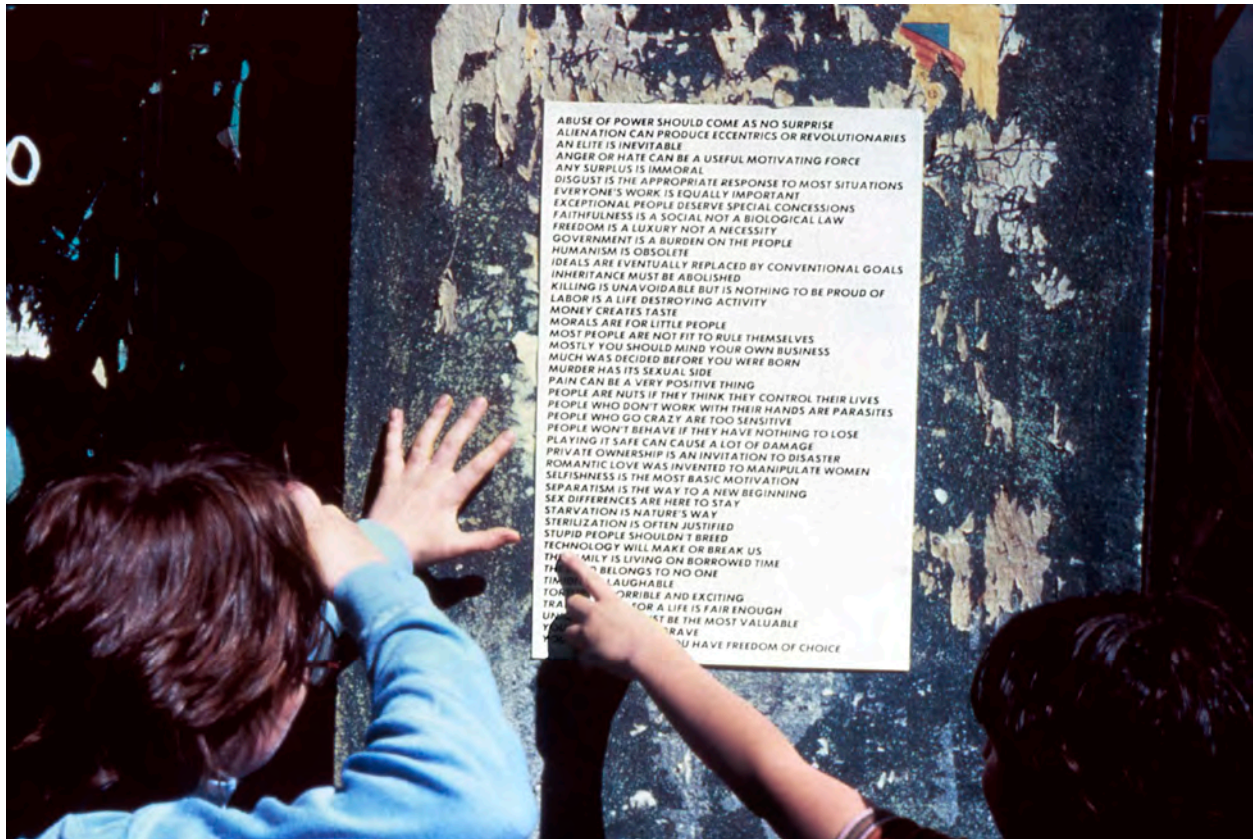 ABUSE OF POWER SHOULD COME AS NO SURPRISE
ALIENATION CAN PRODUCE ECCENTRICS OR REVOLUTIONARIES
AN ELITE IS INEVITABLE
ANGER OR HATE CAN BE A USEFUL MOTIVATING FORCE
ANY SURPLUS IS IMMORAL
DISGUST IS THE APPROPRIATE RESPONSE TO MOST SITUATIONS
EVERYONE'S WORK IS EQUALLY IMPORTANT
EXCEPTIONAL PEOPLE DESERVE SPECIAL CONCESSIONS
FAITHFULNESS IS A SOCIAL NOT A BIOLOGICAL LAW
FREEDOM IS A LUXURY NOT A NECESSITY
GOVERNMENT IS A BURDEN ON THE PEOPLE
HUMANISM IS OBSOLETE
IDEALS ARE EVENTUALLY REPLACED BY CONVENTIONAL GOALS
INHERITANCE MUST BE ABOLISHED
KILLING IS UNAVOIDABLE BUT IS NOTHING TO BE PROUD OF
LABOR IS A LIFE DESTROYING ACTIVITY
MONEY CREATES TASTE
MORALS ARE FOR LITTLE PEOPLE
MOST PEOPLE ARE NOT FIT TO RULE THEMSELVES
MOSTLY YOU SHOULD MIND YOUR OWN BUSINESS
MUCH WAS DECIDED BEFORE YOU WERE BORN
MURDER HAS ITS SEXUAL SIDE
PAIN CAN BE A VERY POSITIVE THING
PEOPLE ARE NUTS IF THEY THINK THEY CONTROL THEIR LIVES
PEOPLE WHO DON'T WORK WITH THEIR HANDS ARE PARASITES
PEOPLE WHO GO CRAZY ARE TOO SENSITIVE
PEOPLE WON'T BEHAVE IF THEY HAVE NOTHING TO LOSE
PLAYING IT SAFE CAN CAUSE A LOT OF DAMAGE
PRIVATE OWNERSHIP IS AN INVITATION TO DISASTER
ROMANTIC LOVE WAS INVENTED TO MANIPULATE WOMEN
SELFISHNESS IS THE MOST BASIC MOTIVATION
SEPARATISM IS THE WAY TO A NEW BEGINNING
SEX DIFFERENCES ARE HERE TO STAY
STARVATION IS NATURE'S WAY
STERILIZATION IS OFTEN JUSTIFIED
STUPID PEOPLE SHOULDN'T BREED
TECHNOLOGY WILL MAKE OR BREAK US
THE FAMILY IS LIVING ON BORROWED TIME
BELONGS TO NO ONE
LAUGHABLE
HORRIBLE AND EXCITING
FOR A LIFE IS FAIR ENOUGH
BE THE MOST VALUABLE
HAVE FREEDOM OF CHOICE